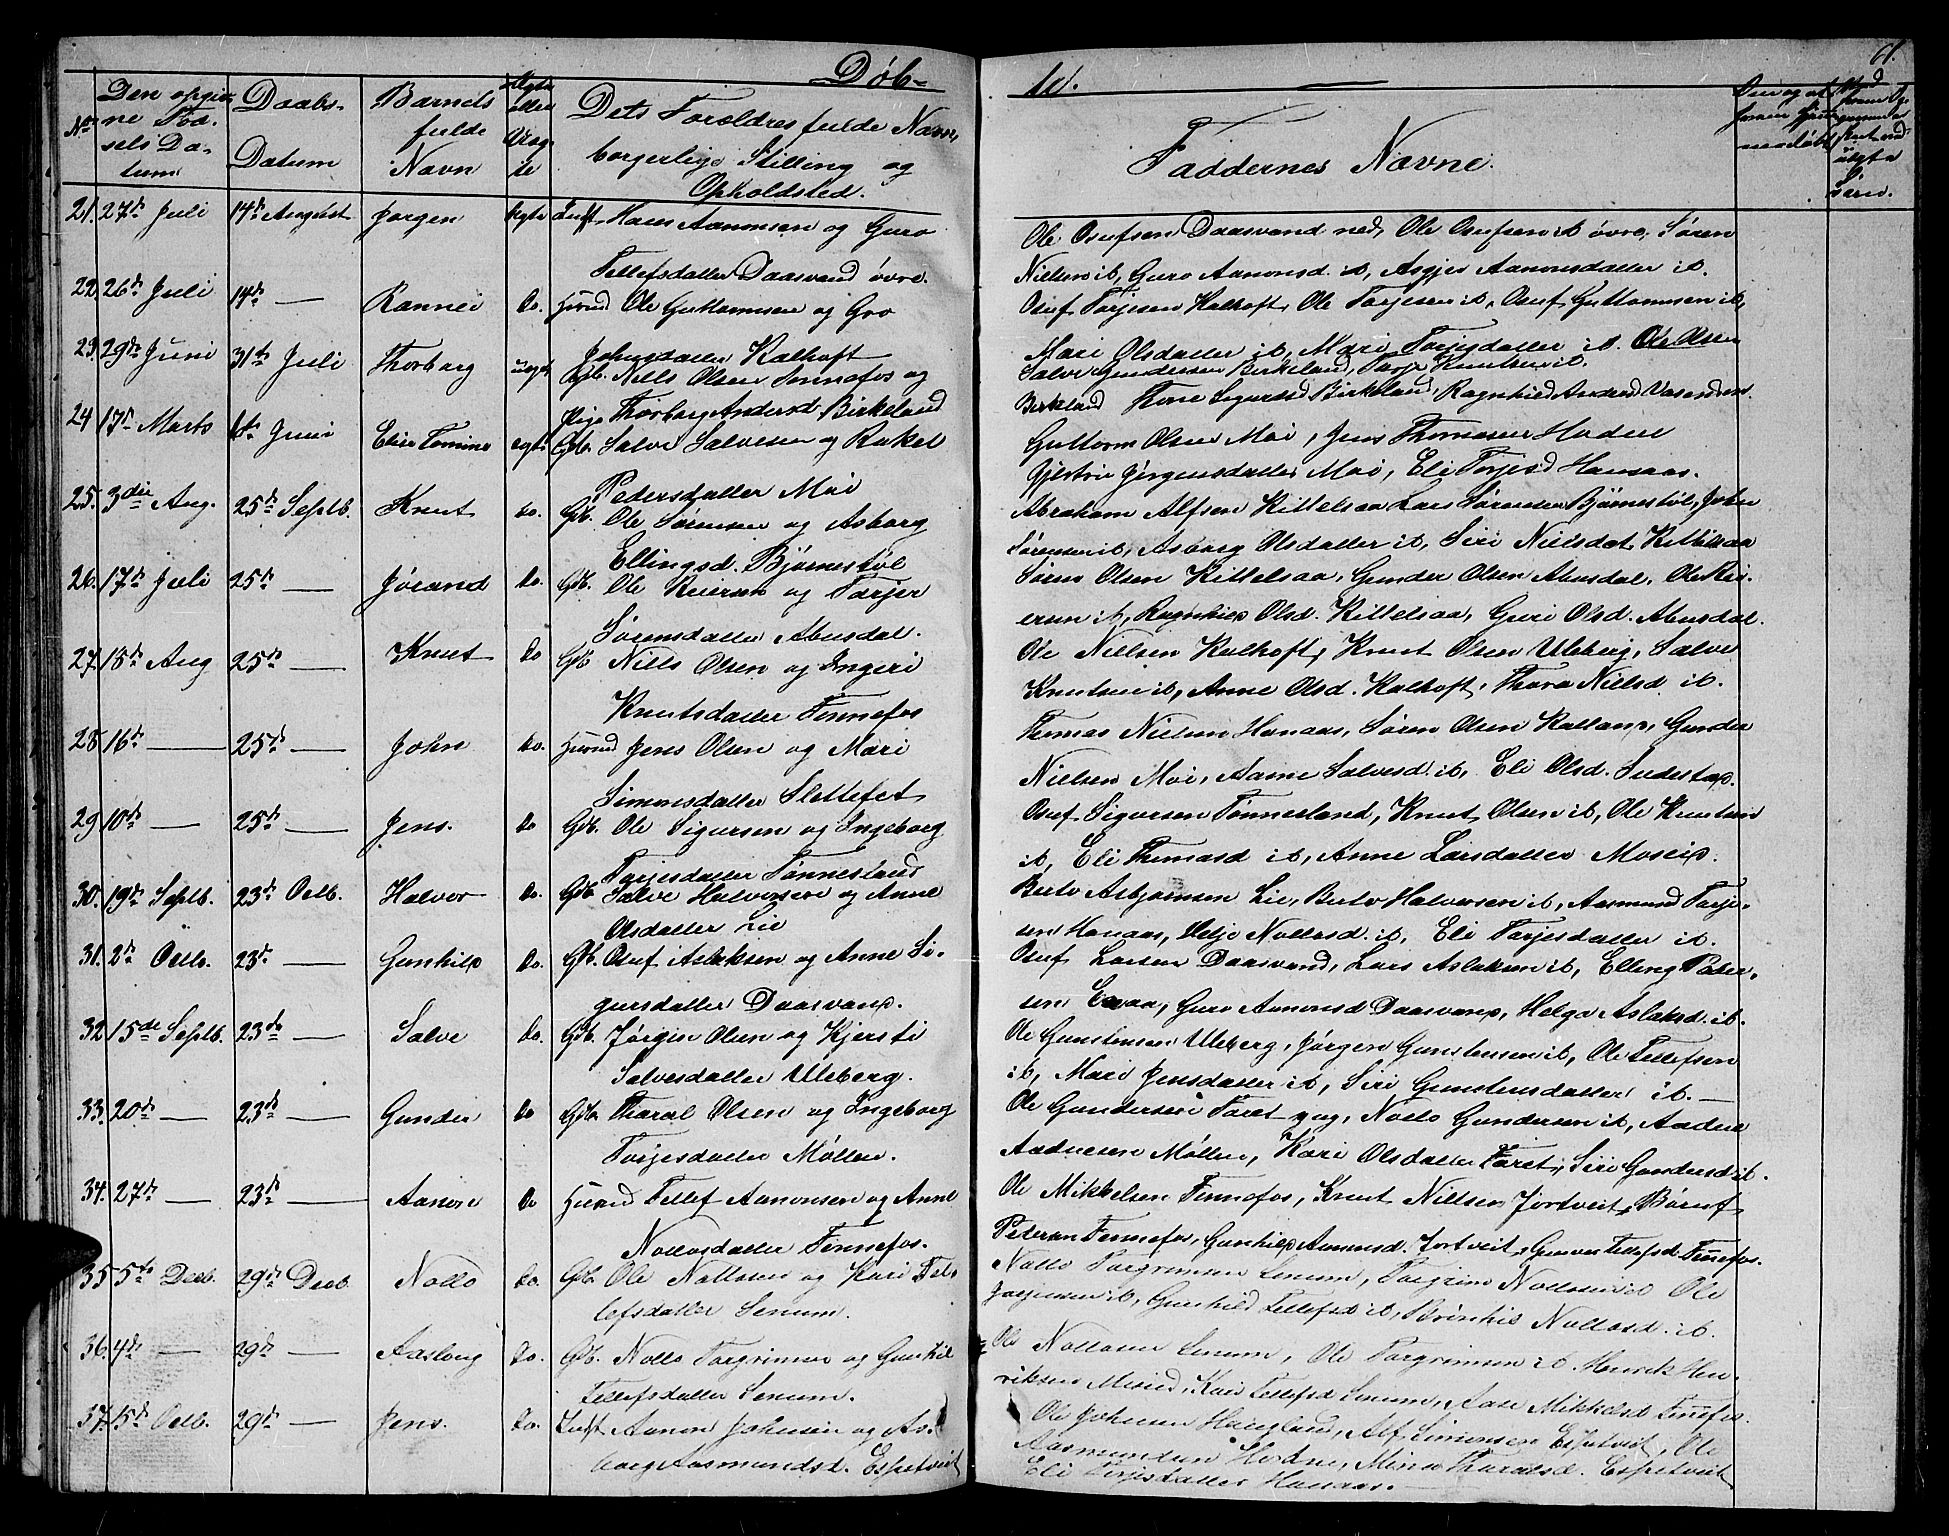 Døb-
te.
61.
No
Den opgiv-
ne Fød-
sels Da-
tum
Daabs-
Datum
Barnets
fulde
Navn
Ægte
eller
Uæg-
te
Dets Forældres fulde Navne,
borgerlige Stilling og
Opholdsted.
Faddernes Navne.
21. 27de Juli 14de August Jørgen ægte Indst. Hans Aanonsen og Guro
Tellefsdatter Daasvand øvre.
Ole Osufsen Daasvand ned, Ole Osufsen ib øvre, Søren
Nielsen ib, Guro Aanonsd. ib, Asgjer Aanonsdatter ib.
22. 26de Juli 14de — Rannei do. Huusmd Ole Guttormsen og Gro
Johnsdatter Kalhoft
Osuf Torjesen Kalhoft, Ole Torjesen ib, Osuf Guttormsen ib,
Mari Olsdatter ib, Mari Torjesdatter ib. Ole Olsen
23. 29de Juni 31te Juli Thorborg uegte Gb. Nells Olsen Tennefos og
Pige Thorborg Andersd. Birkeland
Salve Gundersen Birkeland, Torje Knutsen ib.
Birkeland Tone Sigursd Birkeland, Ragnhild Andersd Vasenden.
24 17de Marts 1te Juni Elise Tomine egte Gb. Salve Salvesen og Rakel
Pedersdatter Moi
Guttorm Olsen Moi, Jens Thomasen Hodne
Kjistri Jørgensdatter Moi, Eli Torjesd Hanaas.
25. 3die Aug. 25de Septb. Knut do. Gb. Ole Sørensen og Asborg
Ellingsd. Bjørnestøl
Abraham Alfsen Kittelsaa Lars Sørensen Bjørnestøl, John
Sørensen ib, Asborg Olsdatter ib, Siri Nielsdat. Kittelsaa
26. 17de Juli 25de — Jørand do. Gb. Ole Reiersen og Torjer
Sørensdatter Abusdal.
Søren Olsen Kittelsaa, Gunder Olsen Abusdal, Ole Rei-
ersen ib, Ragnhild Olsd. Kittelsaa, Guri Olsd. Abusdal.
27. 18de Aug 25de — Knut do Gb Nills Olsen og Ingeri
Knutsdatter Tennefos
Ole Nielsen Kalhoft, Knut Olsen Uleberg, Salve
Knutsen ib, Anne Olsd. Kalhoft, Thora Nielsd ib.
28 16de — 25de — John do. Huusmd Jens Olsen og Mari
Simonsdatter Slettefet
Thomas Nielsen Hanaas, Søren Olsen Kalland, Gunder
Nielsen Moi, Aasne Salvesd. ib, Eli Olsd. Sudestad.
29 10de — 25de — Jens. do Gb. Ole Sigursen og Ingeborg
Torjesdatter Tønnesland
Osuf Sigursen Tønnesland, Knut Olsen ib, Ole Knutsen
ib, Eli Thomasd ib, Anne Larsdatter Moseid.
30. 19de Septb. 23de Octb. Halvor do. Gb. Salve Halvorsen og Anne
Olsdatter Lie
Berte Asbjørnsen Lie, Berte Halvorsen ib, Aasmund Torje-
sen Hanaas, Helje Nollosd. ib, Eli Torjesdatter ib.
31. 2de Octb. 23de — Gunhild do. Gb. Osuf Aslaksen og Anne Si-
gursdatter Daasvand.
Osuf Larsen Daasvand, Lars Aslaksen ib, Elling Peder-
sen Enaa, Guro Aanonsd Daasvand, Helga Aslaksd. ib.
32 15de Septb. 23de — Salve do. Gb. Jørgen Olsen og Kjersti
Salvesdatter Uleberg.
Ole Gunstensen Uleberg, Jørgen Gunstensen ib, Ole Tellefsen
ib, Mari Jensdatter ib, Siri Gunstensdatter ib. —
33. 20de — 23de — Gunder do Gb. Tharal Olsen og Ingeborg
Torjesdatter Møllen.
Ole Gundersen Føret, Nollo Gundersen ib, Aadne
Aadnesen Møllen, Kari Olsdatter Føret, Siri Gundersd ib.
34. 27de — 23de — Aanon do Huusmd Tellef Aanonsen og Anne
Nollosdatter Tennefos.
Ole Mikkelsen Tennefos, Knut Nillsen Jortveit, Børuf
Pedersen Tennefos, Gunhild Aanonsd. Jortveit, Gunver Tellefsd Tennefos.
35 5te Decb. 29de Decb. Nollo do. Gb. Ole Nollosen og Kari Tel-
lefsdatter Senum.
Nollo Torgrimsen Senum, Torgrim Nollosen ib Ole
Jørgensen ib, Gunhild Tellefsd ib, Brønhil Nollosd. ib.
36. 4de — 29de — Aasborg do. Gb. Nollo Torgrimsen og Gunhil
Tellefsdatter Senum.
Ole Nollosen Senum, Ole Torgrimsen ib. Henrik Hen-
riksen Moseid, Kari Tellefsd Senum, Aase Mikkelsd Tennefos.
37. 15de Octb. 29de — Jens. do. Indst Aanon Johnsen og As-
borg Aasmundsd. Espetveit
Ole Johnsen Haugland, Alf Simonsen Espetveit, Ole
Aasmundsen Hodne, Mina Tharalsd. Espetveit
Eli Torjesdatter Hanaas. —